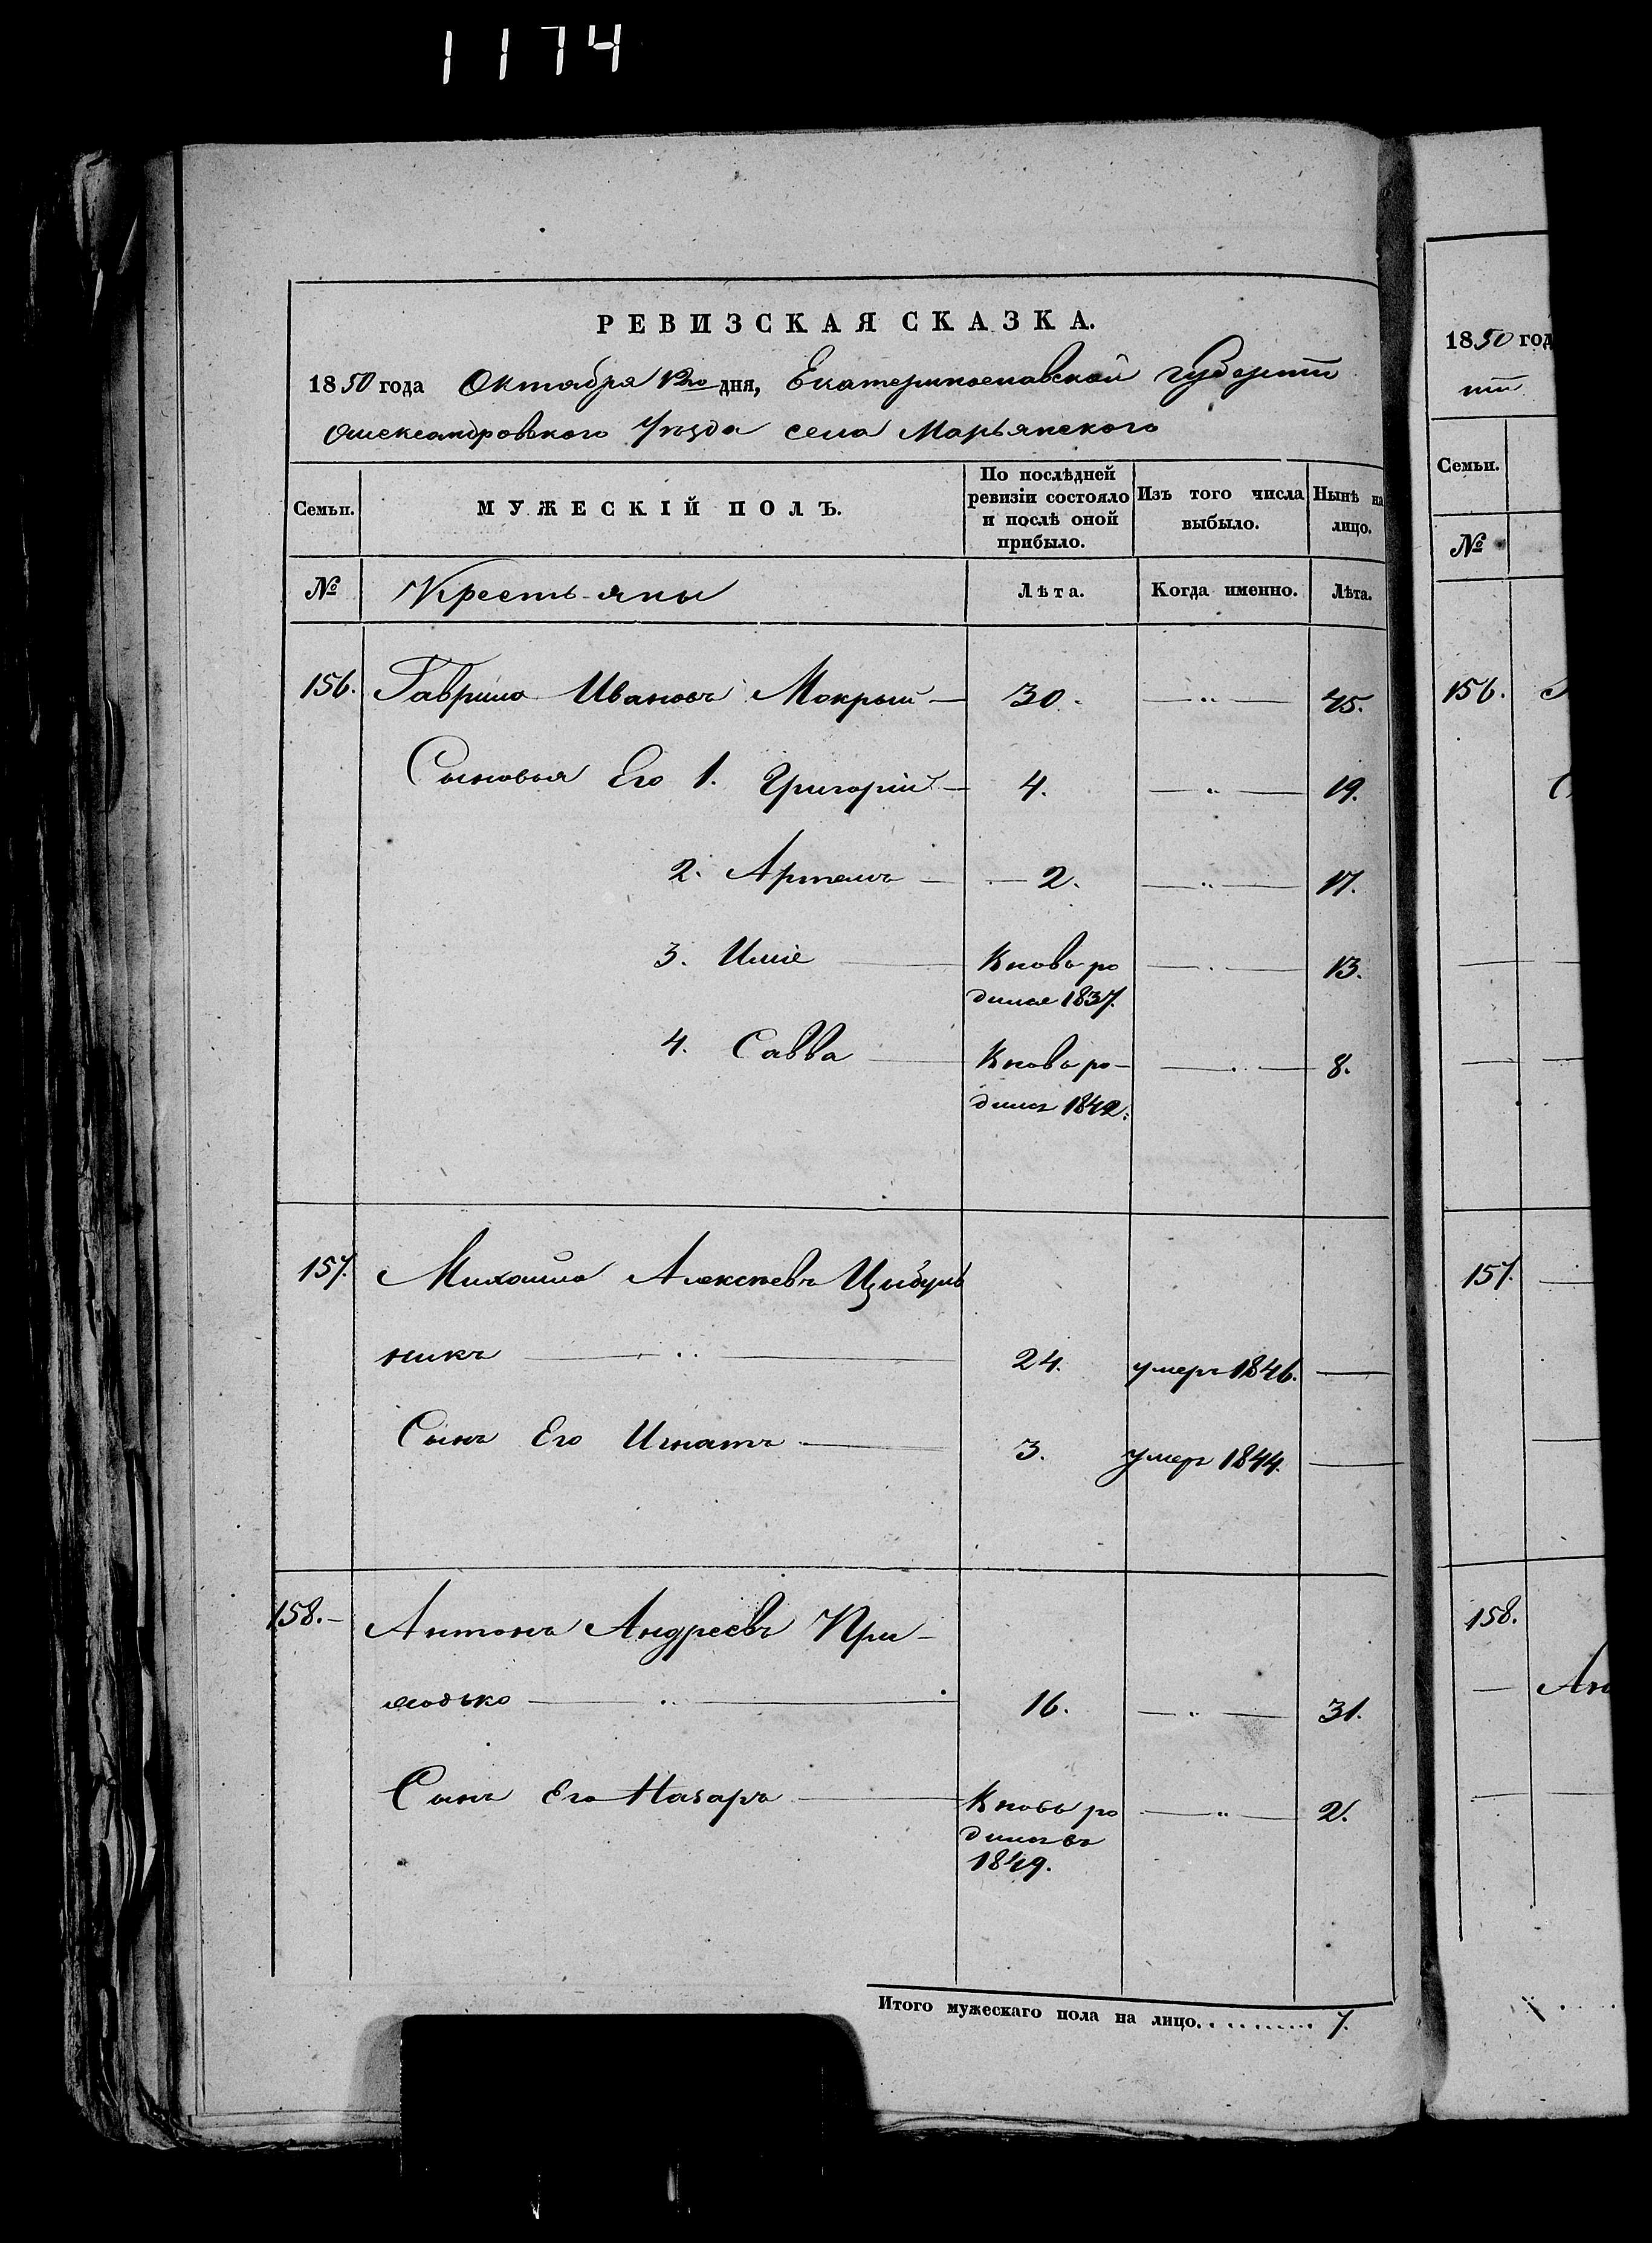 1174
РЕВИЗСКАЯ СКАЗКА.
1850 года Октября 12го дня, Екатеринославской губерніи
Александровского Уѣзда села Марьянского
Семьи.
МУЖЕСКІЙ ПОЛЪ.
По послѣдней ревизіи состояло и послѣ оной прибыло.
Изъ того числа выбыло.
Нынѣ на лицо.
№ Крестьяны Лѣта. Когда именно. Лѣта.
156. Гаврило Ивановъ Мокрый — 30. —„— 45.
Сыновья Его 1. Григорій — 4. —„— 19.
2. Артемъ — 2. —„— 17.
3. Илліе — Вновь ро — 13.
дился 1837.
4. Савва — Вновь ро- — 8.
дился 1842.
157. Михайло Алексѣевъ Цибуль
никъ — 24. умеръ 1846. —
Сынъ Его Игнатъ — 3. умеръ 1844. —
158. Антонъ Андреевъ При-
ходько — 16. —„— 31.
Сынъ Его Назаръ — Вновь ро —„— 2.
дился въ
1849.
Итого мужескаго пола на лицо. 7.
1850 год
ніи
Семьи.
№
156.
157.
158.
Ан